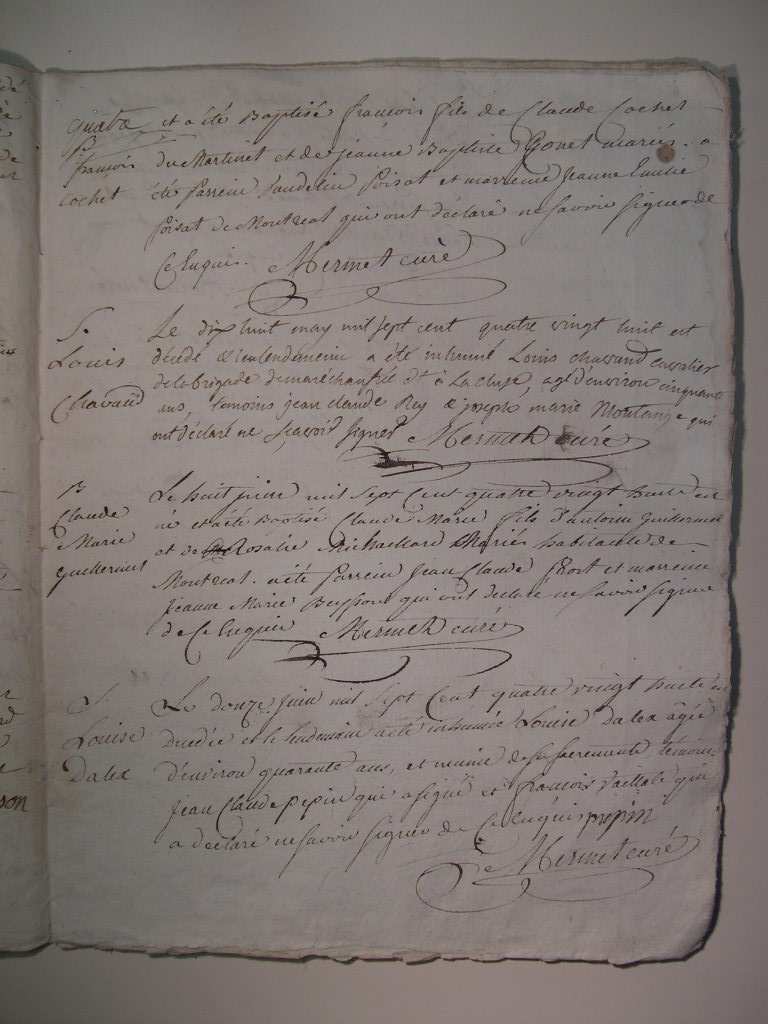 et a été Baptisé françois fils de Claude Cochet
B
françois
Cochet
du Martinet et de jeanne Baptiste Gonet mariés. a
été parrein poisat et marreine Jeanne
poisat de Montreal qui ont déclaré ne savoir signer de
Ce Enquis. Mermet curé
S.
Louis
Chavand
Le dix huit may mil sept cent quatre vingt huit est
décédé & le lendemain a été inhumé Louis chavand cavalier
de la brigade de maréchaussée à La cluse, agé d'environ cinquante
ans, temoins jean claude Rey & joseph marie qui
ont déclaré ne scavoir signer Mermet curé
B
Claude
Marie
Guillermet
Le huit juin mil sept Cent quatre vingt huit est
né et a été Baptisé Claude Marie fils d'antoine Guillermet
et de Rosalie Michaillard Mariés habitants de
Montreal. a été parrein Jean Claude et marreine
Jeanne Marie qui ont declaré ne savoir signer
de Ce Enquis Mermet curé
S.
Louise
Dalex
Le douze juin mil sept Cent quatre vingt huit est
decedée et le lendemain a été inhumée Louise Dalex âgée
d'environ quarante ans, et munie de ses sacrements, témoins
Jean Claude pepin qui a signé et françois qui
a declaré ne savoir signer de Ce Enquis pepin
Mermet curé
son